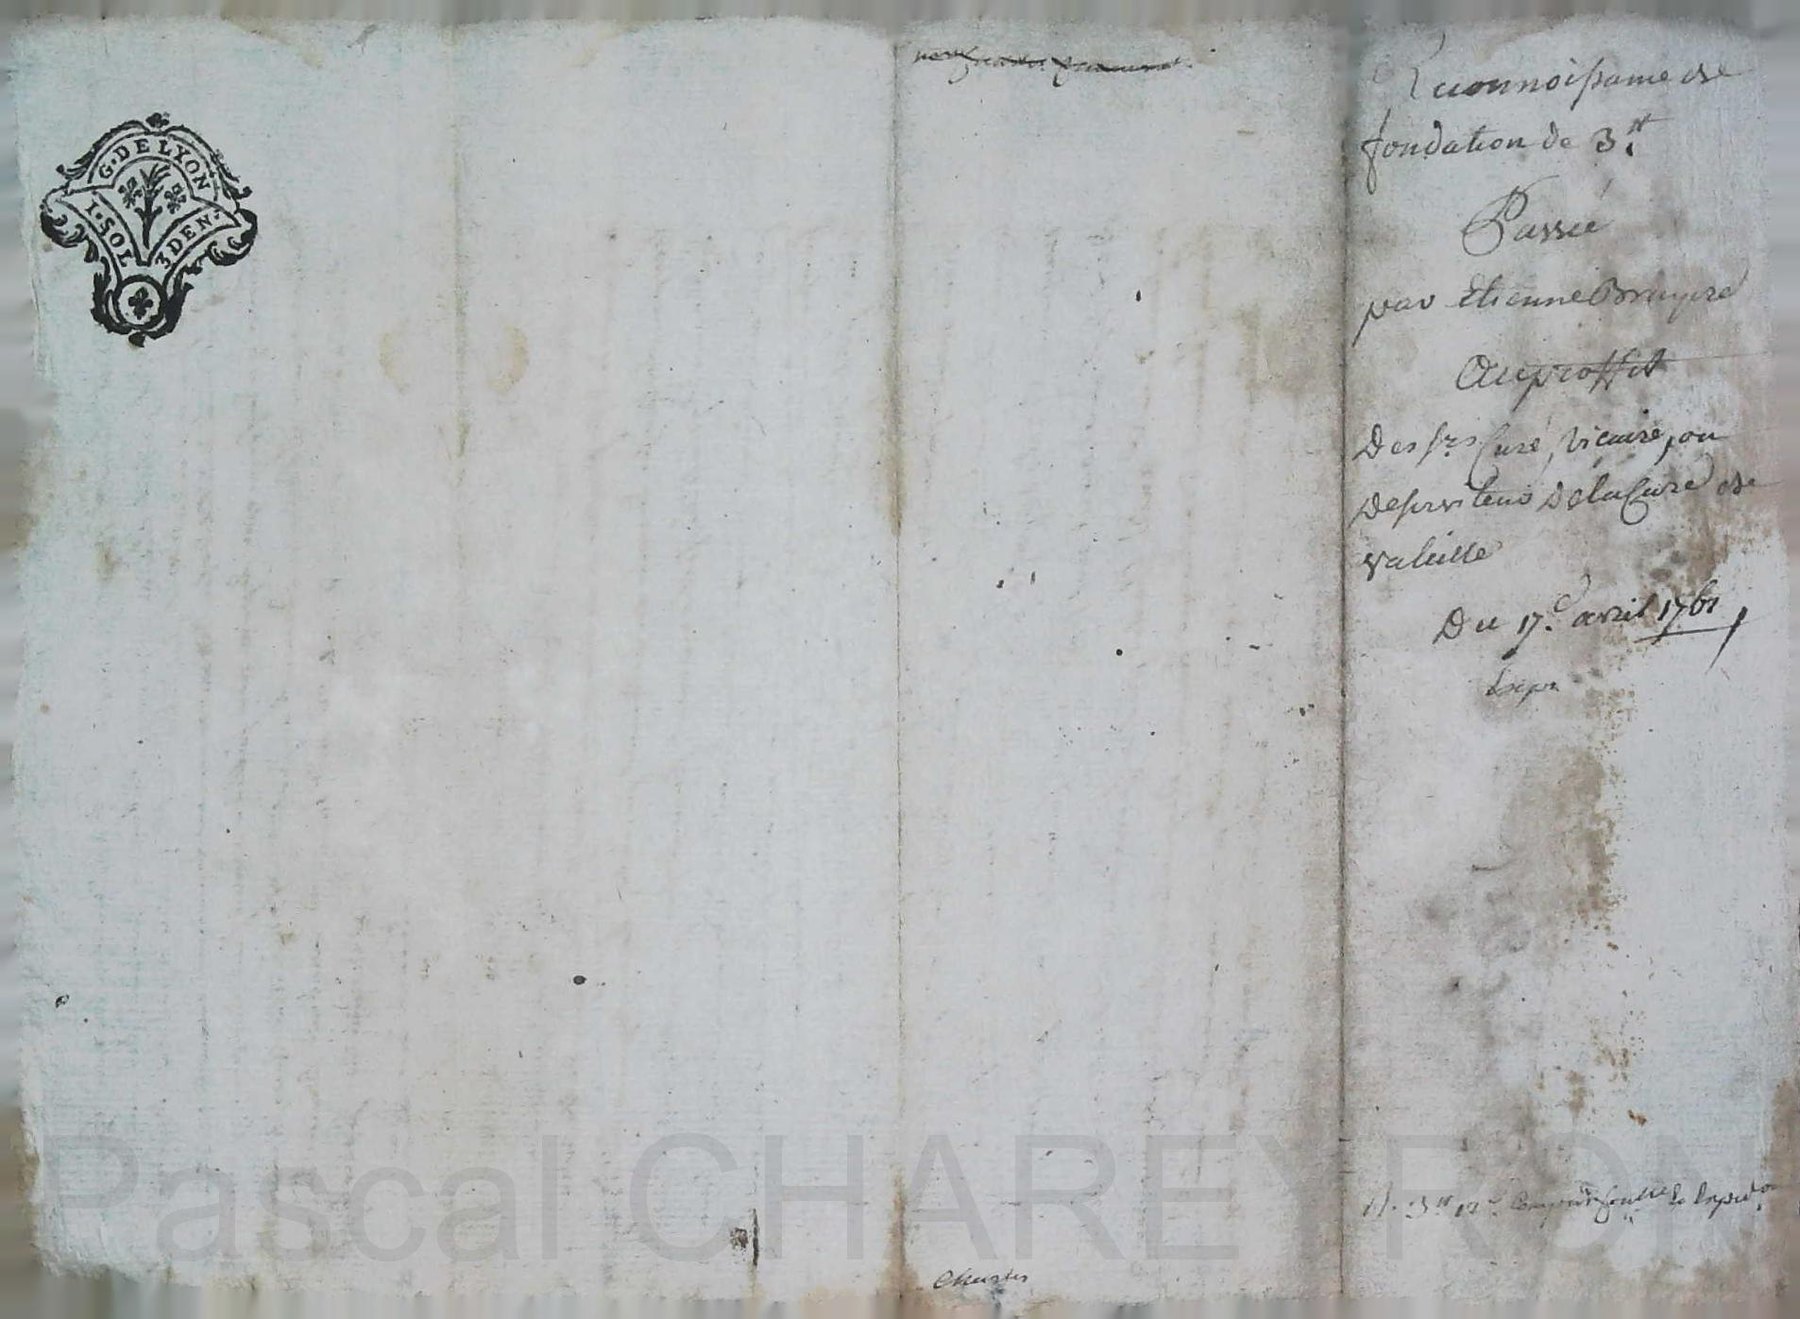 G. DE LYON
1. SOL 3 DEN.
Reconnoissance de
fondation de 3.tt
Passée
par Etienne Bruyere
Au proffit
Des srs Curé, Vicaire, ou
Deserviteus De la Cure de
Valeille
Du 17.e avril 1761
Exper
3tt 12s
Pascal CHAREYRON